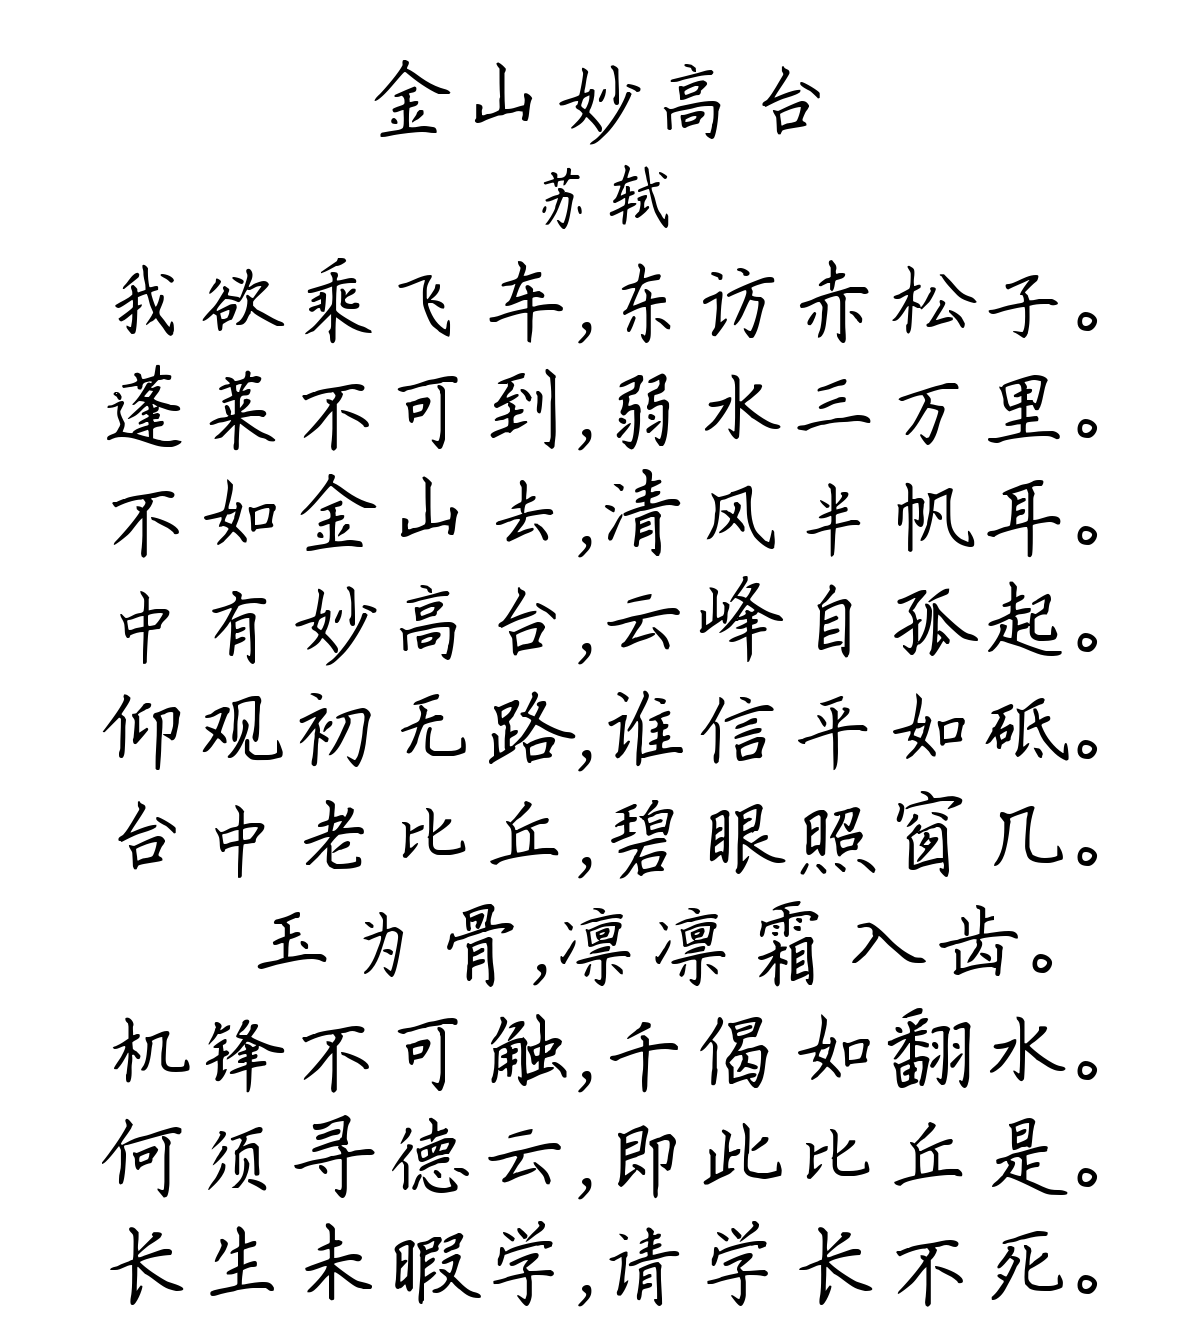 金山妙高台
苏轼
我欲乘飞车,东访赤松子。
蓬莱不可到,弱水三万里。
不如金山去,清风半帆耳。
中有妙高台,云峰自孤起。
仰观初无路,谁信平如砥。
台中老比丘,碧眼照窗几。
玉为骨,凛凛霜入齿。
机锋不可触,千偈如翻水。
何须寻德云,即此比丘是。
长生未暇学,请学长不死。